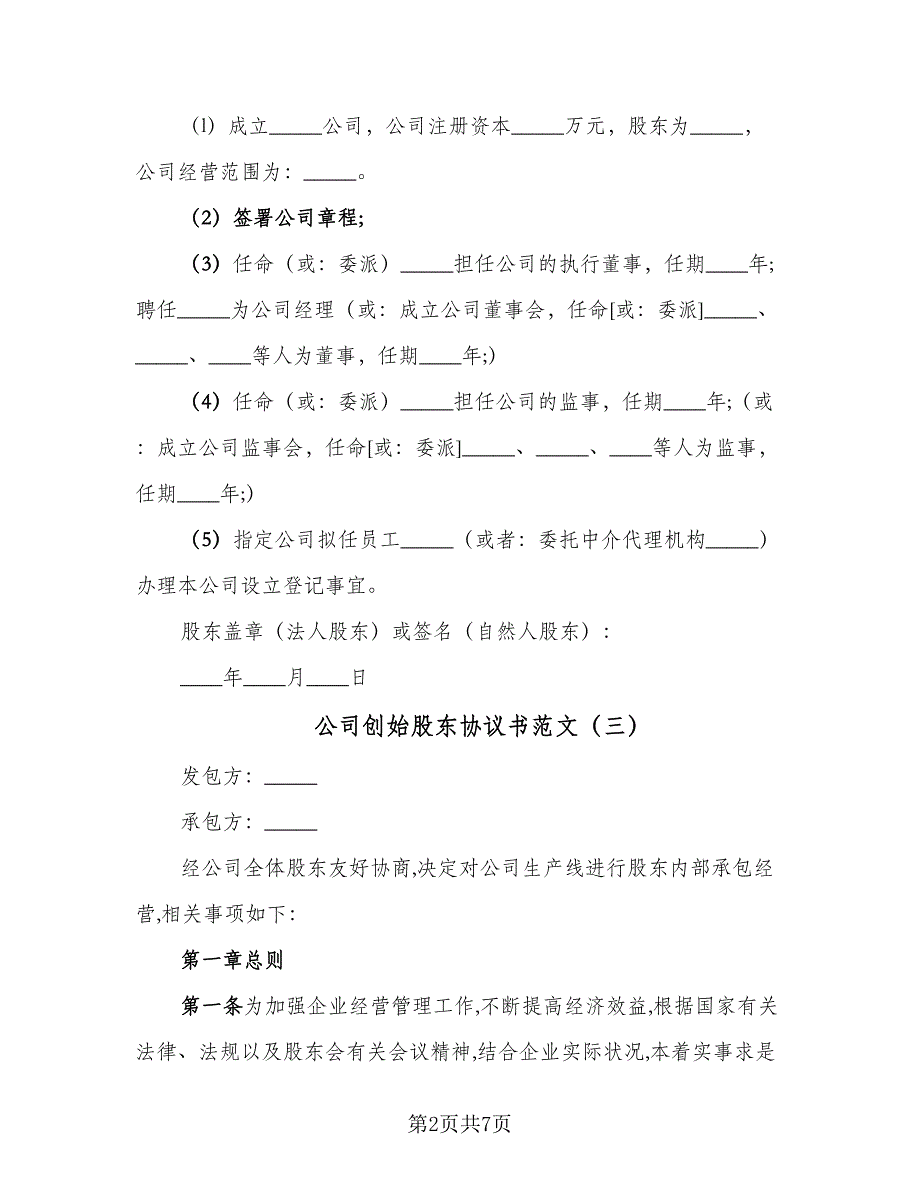 (1) 成立_____公司，公司注册资本_____万元，股东为_____，
公司经营范围为：_____。
（2）签署公司章程;
（3）任命（或：委派）_____担任公司的执行董事，任期____年;
聘任_____为公司经理（或：成立公司董事会，任命[或：委派]_____、
_____、____等人为董事，任期____年;）
（4）任命（或：委派）_____担任公司的监事，任期____年;（或
：成立公司监事会，任命[或：委派]_____、_____、____等人为监事，
任期____年;）
（5）指定公司拟任员工_____（或者：委托中介代理机构_____）
办理本公司设立登记事宜。
股东盖章（法人股东）或签名（自然人股东）：
____年____月____日
公司创始股东协议书范文（三）
发包方：_____
承包方：_____
经公司全体股东友好协商,决定对公司生产线进行股东内部承包经
营,相关事项如下：
第一章总则
第一条为加强企业经营管理工作,不断提高经济效益,根据国家有关
法律、法规以及股东会有关会议精神,结合企业实际状况,本着实事求是
第2页共7页